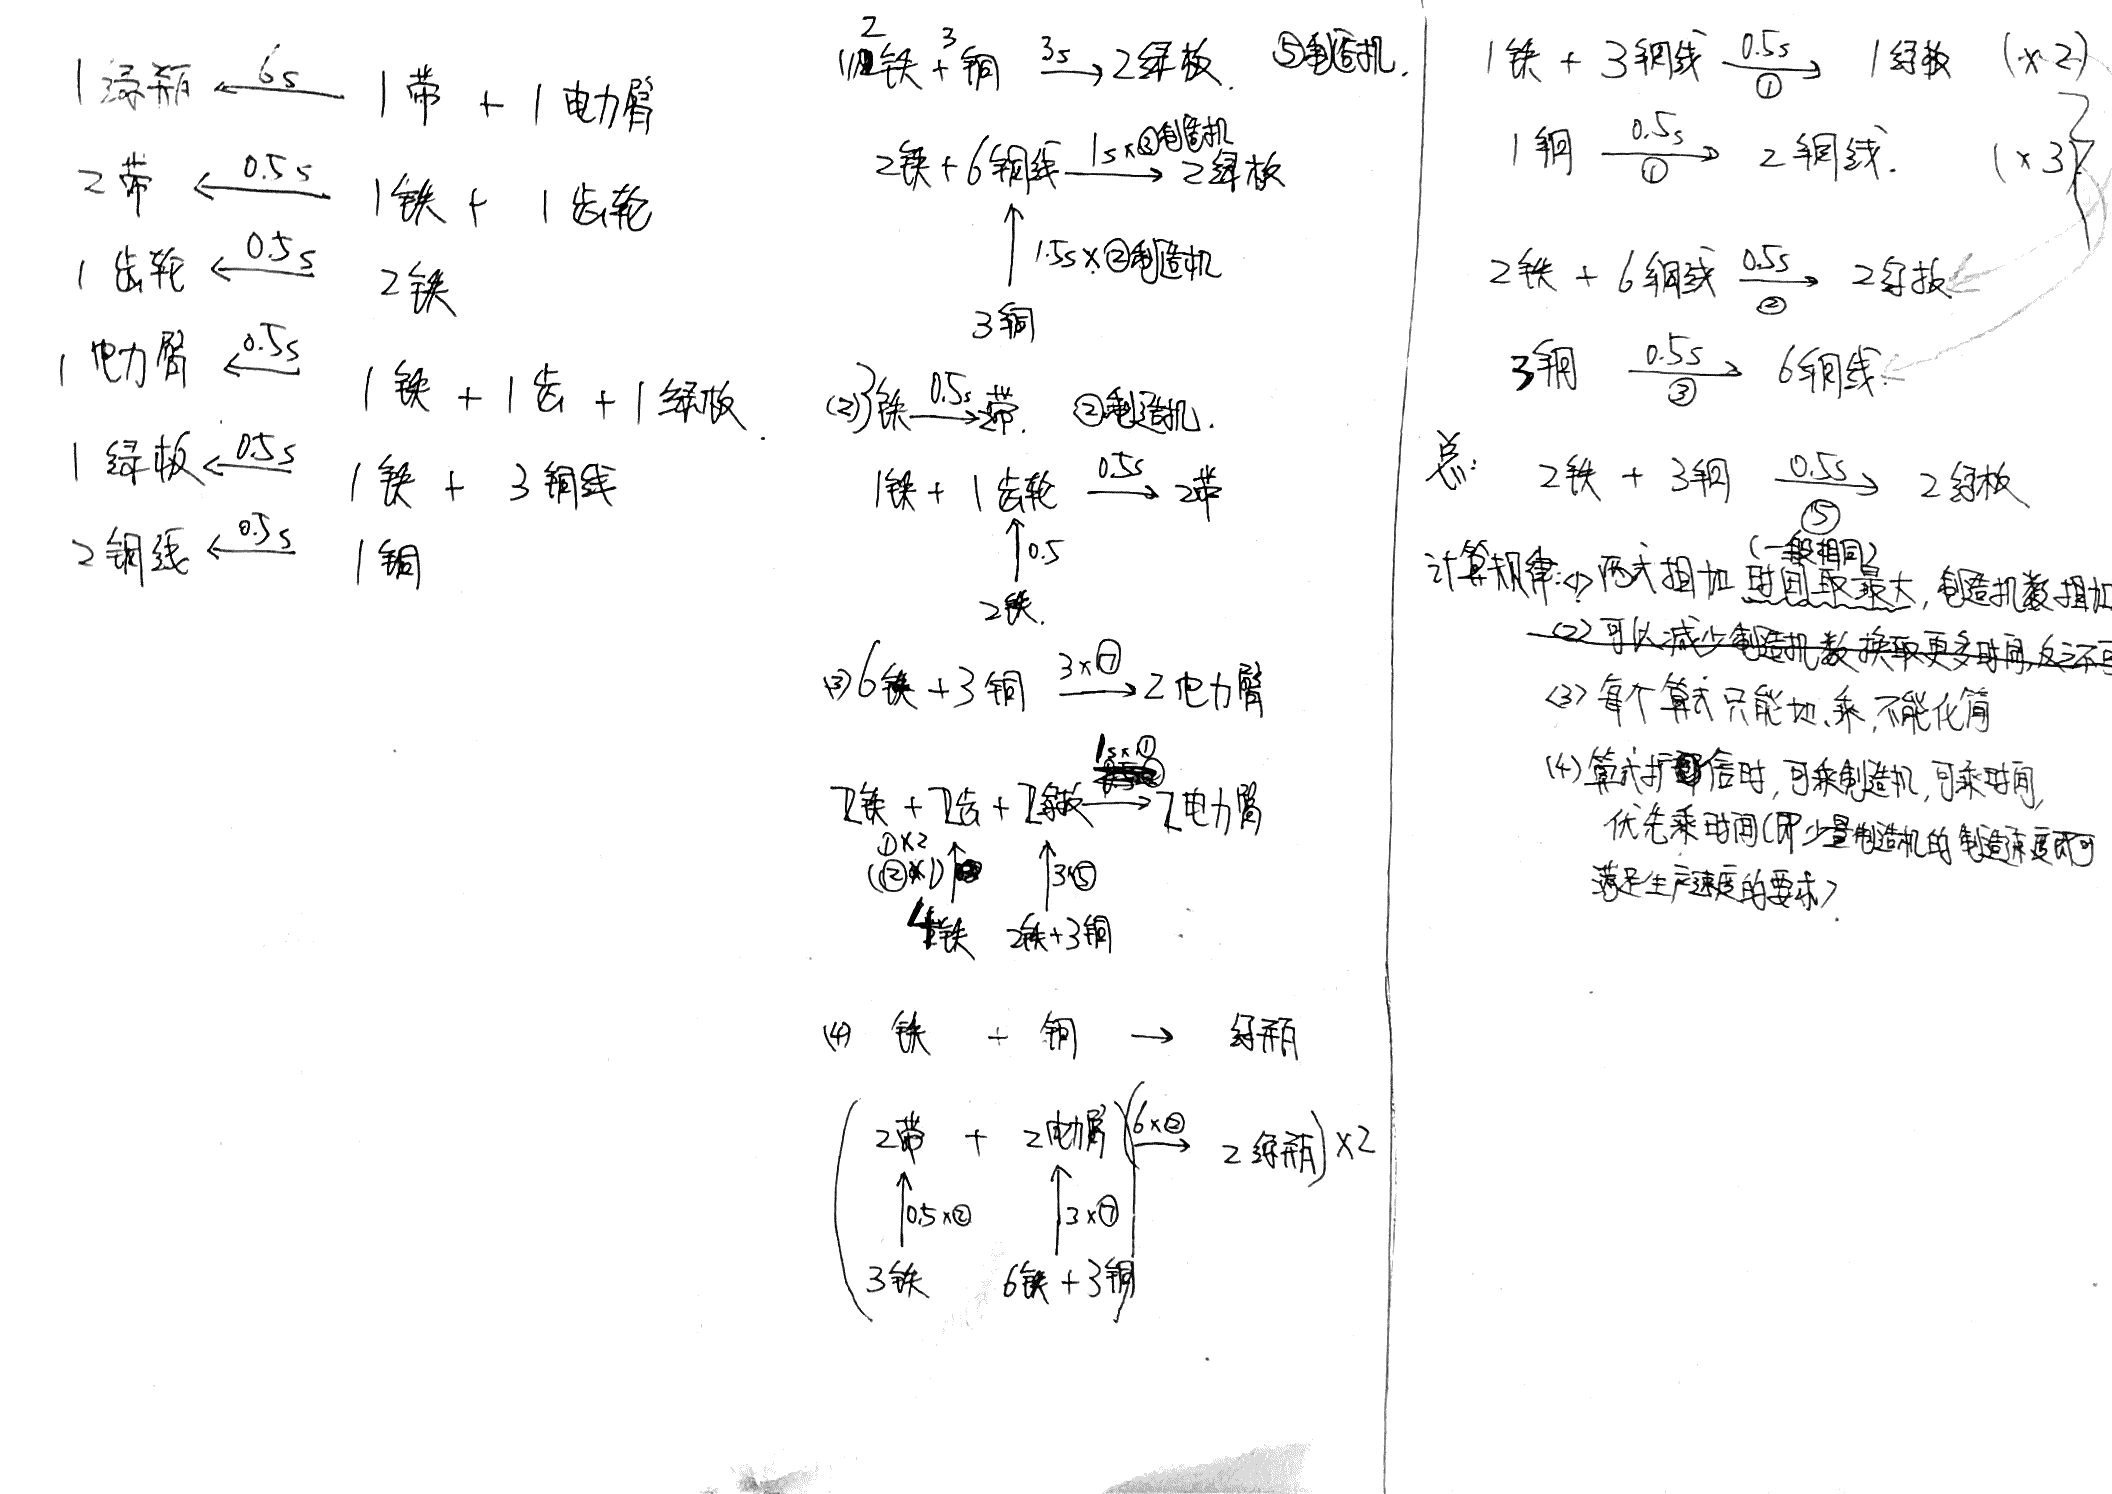 1绿瓶 ←6s 1带 + 1电力臂
2带 ←0.5s 1铁 + 1齿轮
1齿轮 ←0.5s 2铁
1电力臂 ←0.5s 1铁 + 1齿 + 1绿板
1绿板 ←0.5s 1铁 + 3铜线
2铜线 ←0.5s 1铜
(1) 2铁 + 3铜 3s→ 2绿板. ⑤制造机.
2铁 + 6铜线 1s×②制造机→ 2绿板
↑1.5s×②制造机
3铜
(2) 3铁 0.5s→ 2带. ②制造机.
1铁 + 1齿轮 0.5s→ 2带
↑0.5
2铁.
(3) 6铁 + 3铜 3×⑦→ 2电力臂
1s×①
2铁 + 2齿 + 2绿板 → 2电力臂
①×2
(②×1) ↑ ↑3×⑤
4铁 2铁+3铜
(4) 铁 + 铜 → 绿瓶
(2带 + 2电力臂 6×②→ 2绿瓶)×2
↑0.5×② ↑3×⑦
3铁 6铁+3铜
1铁 + 3铜线 0.5s①→ 1绿板 (×2)
1铜 0.5s①→ 2铜线. (×3)
2铁 + 6铜线 0.5s②→ 2绿板
3铜 0.5s③→ 6铜线
总: 2铁 + 3铜 0.5s⑤→ 2绿板
(一般相同)
计算规律:(1) 两式相加 时间取最大, 制造机数相加
(2) 可以减少制造机数换取更多时间,反之不可
(3) 每个算式只能加、乘,不能化简
(4) 算式扩倍时,可乘制造机,可乘时间,
优先乘时间(即少量制造机的制造速度即可
满足生产速度的要求)